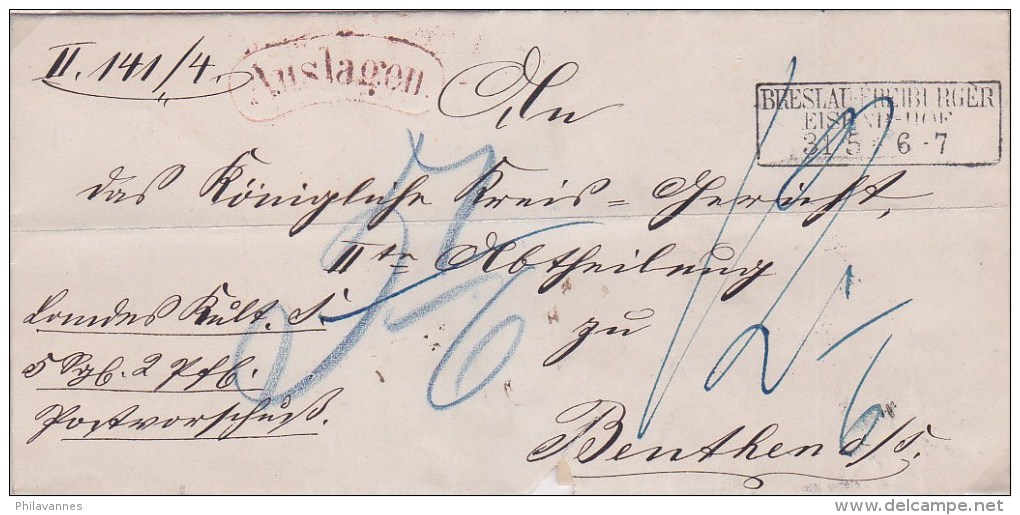 II. 141/4.
Auslagen
BRESLAU-FREIBURGER
EISENB-HOF
31 5 6-7
An
das Königliche Kreis=Gericht,
IIte Abtheilung
zu
Beuthen o/S.
Landes Kult. S.
5 Sgb. 2 Pfb.
Postvorschuß.
Philavannes
www.delcampe.net